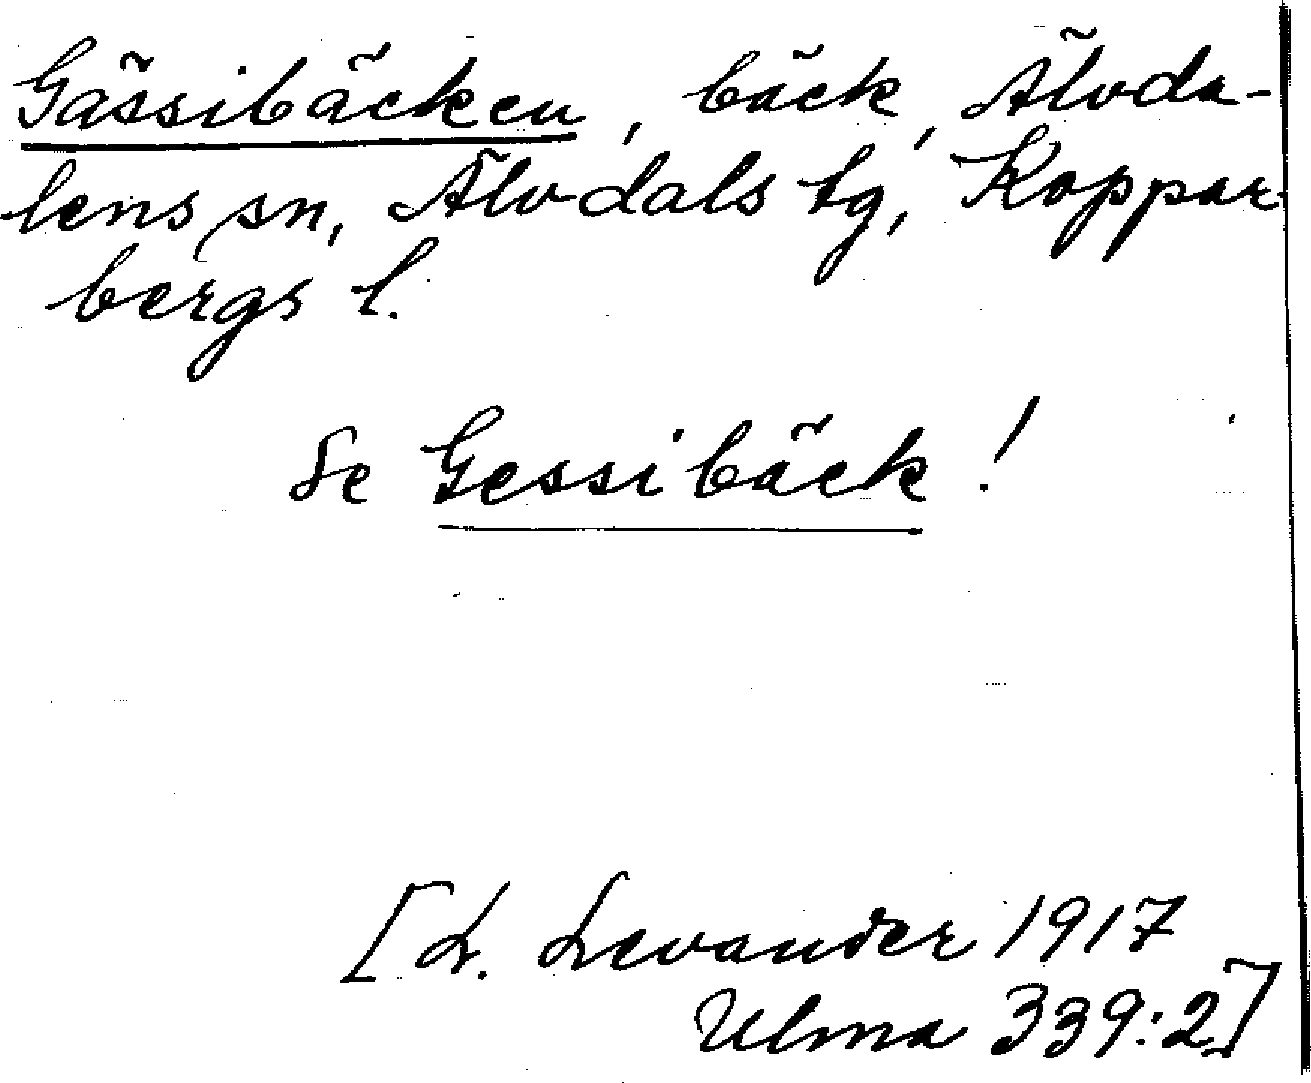 Gässibäcken, bäck, Älvda-
lens sn, Älvdals tg, Koppar-
bergs l.
Se Gessibäck!
[L. Levander 1917
Ulma 339:2]